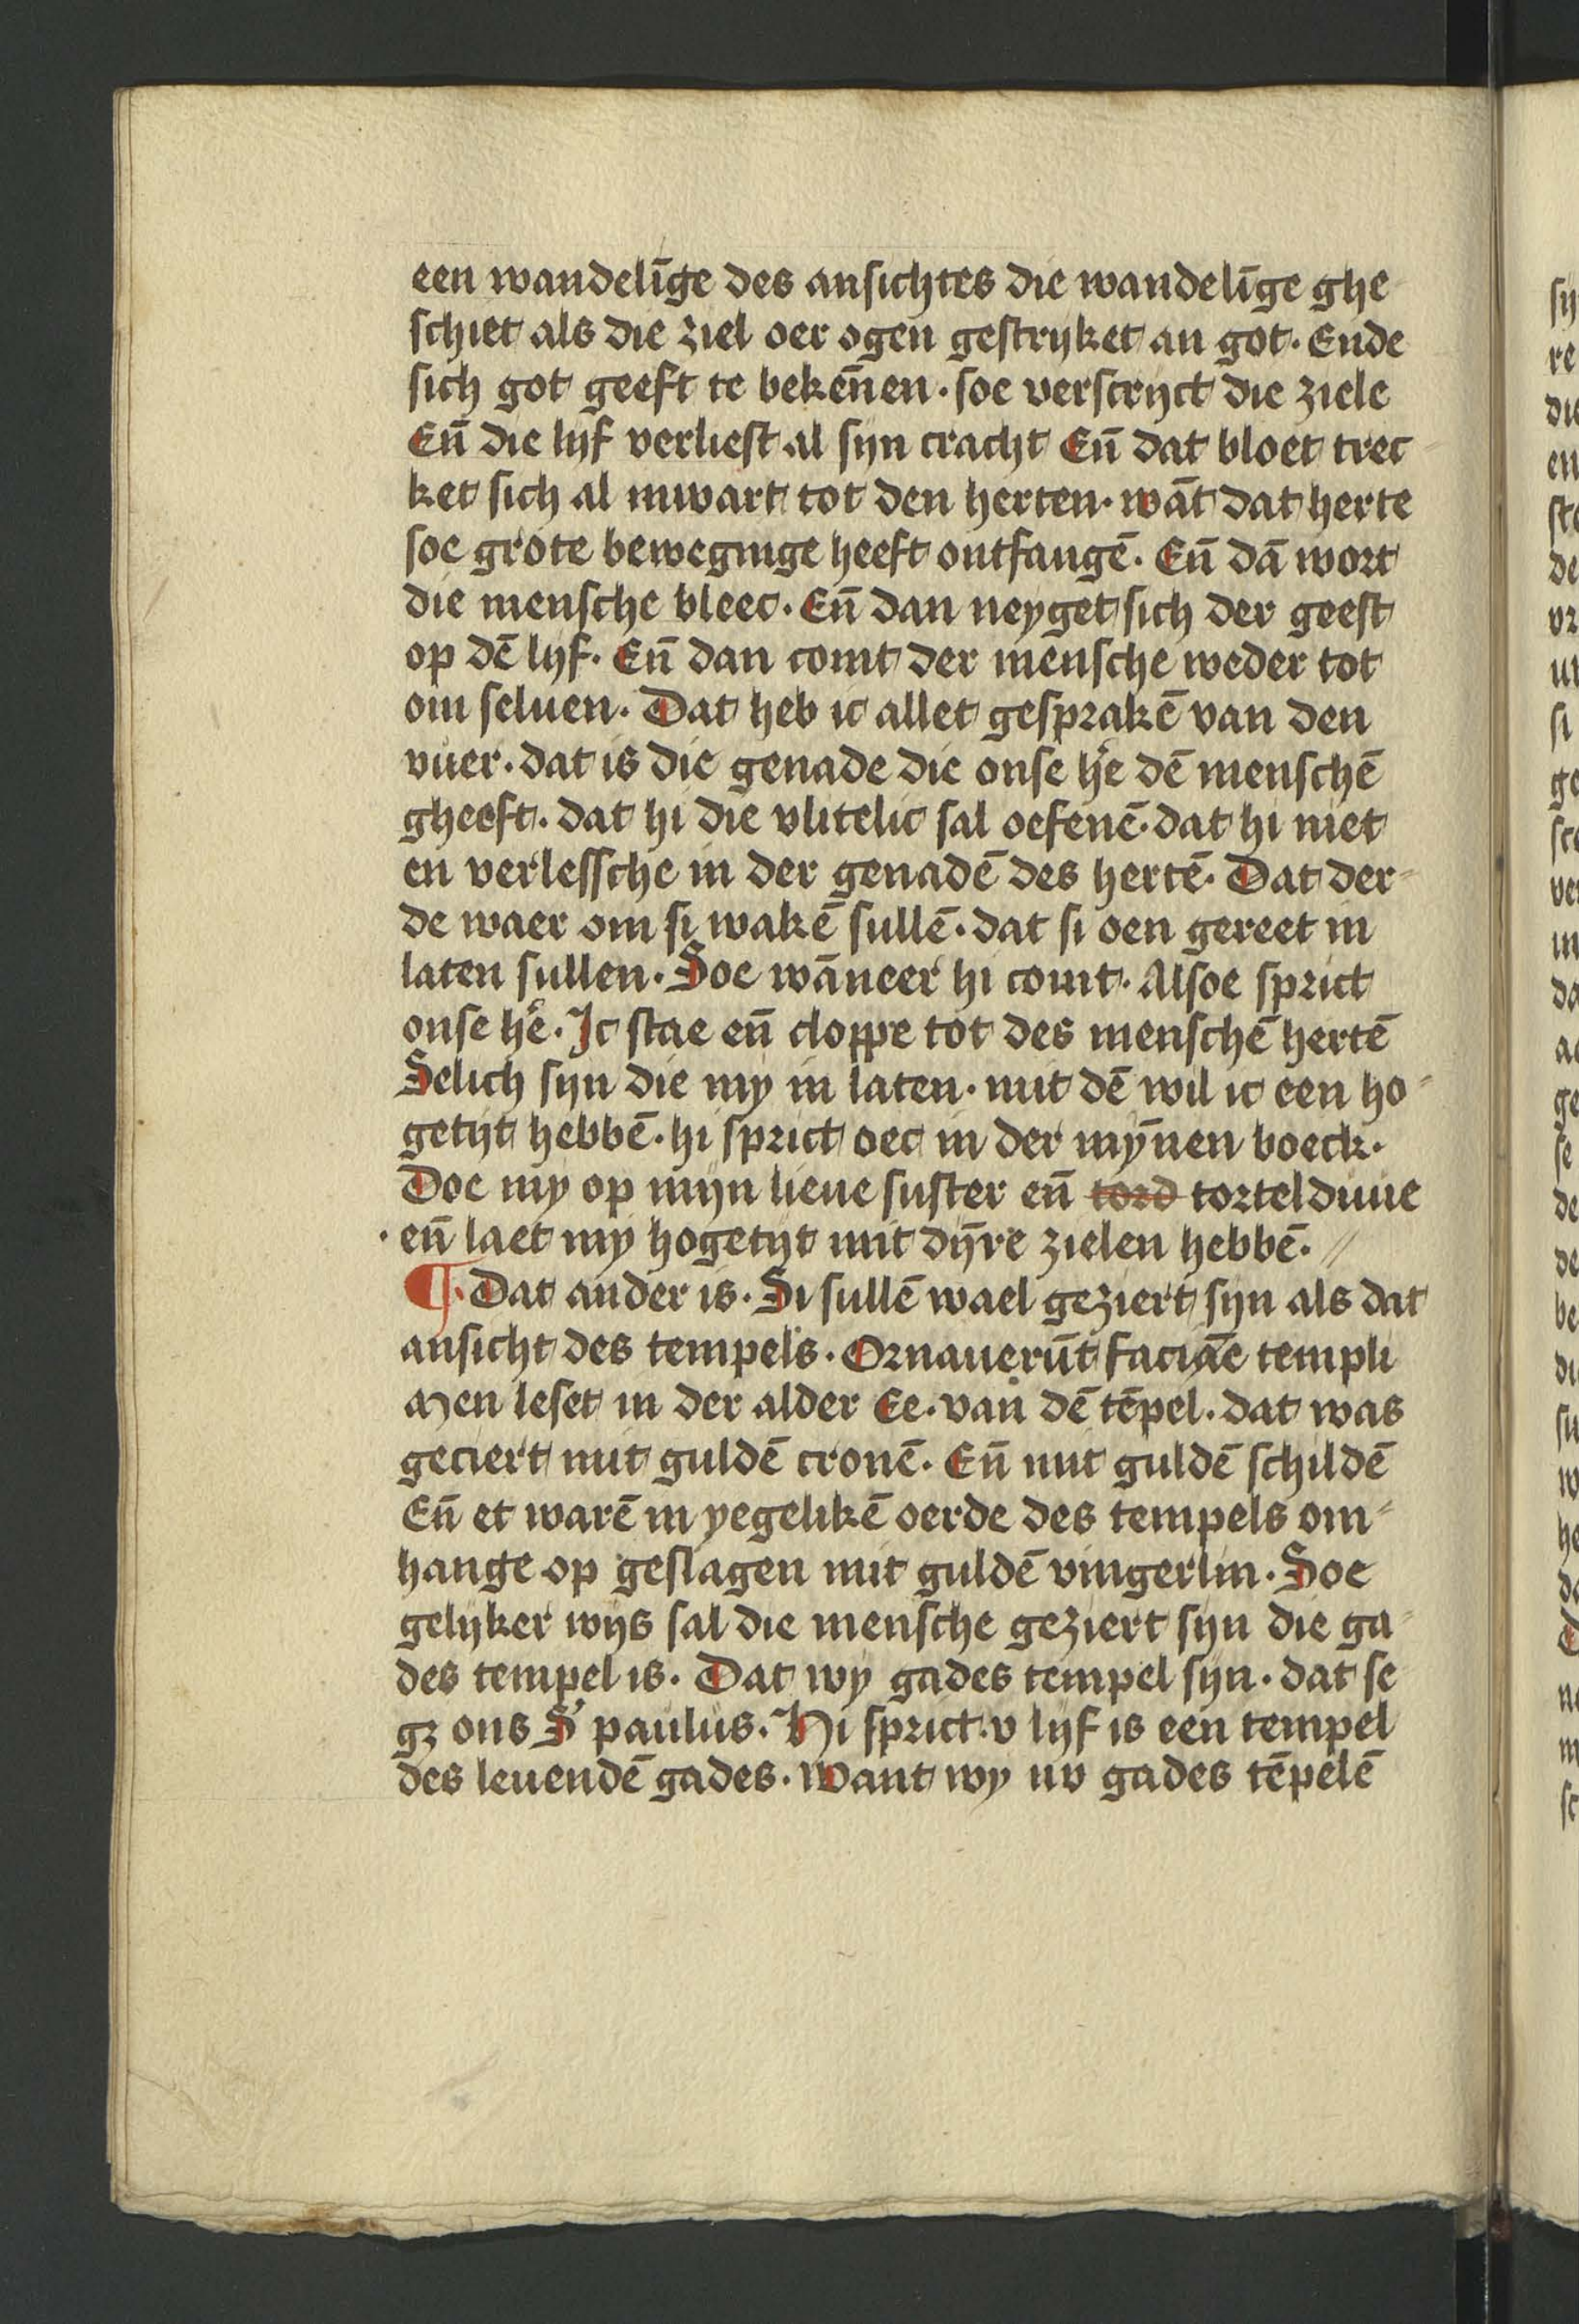 een wandelīge des ansichtes die wandelīge ghe
schiet als die ziel oer ogen gestryket an got. Ende
sich got geeft te bekēnen. soe verscryct die ziele
Eñ die lyf verliest al syn cracht Eñ dat bloet trec
ket sich al inwart tot den herten. wāt dat herte
soe grote beweginge heeft ontfangē. Eñ dā wort
die mensche bleec. Eñ dan neyget sich der geest
op dē lyf. Eñ dan comt der mensche weder tot
om seluen. Dat heb ic allet gesprakē van den
vuer. dat is die genade die onse h̄e dē menschē
gheeft. dat hi die vlitelic sal oefenē. dat hi niet
en verlessche in der genadē des hertē. Dat der-
de waer om si wakē sullē. dat si oen gereet in
laten sullen. Soe wāneer hi comt. Alsoe sprict
onse h̄e. Ic stae eñ cloppe tot des menschē hertē
Selich syn die my in laten. mit dē wil ic een ho-
getyt hebbē. hi sprict oec in der mȳnen boeck.
Doe my op myn lieue suster eñ tord tortelduue
eñ laet my hogetyt mit dȳre zielen hebbē. //
¶. Dat ander is. Si sullē wael geziert syn als dat
ansicht des tempels. Ornauerūt faciāe templi
Men leset in der alder Ee. van dē tēpel. dat was
geciert mit guldē cronē. Eñ mit guldē schildē
Eñ et warē in yegelikē oerde des tempels om-
hange op geslagen mit guldē vingerlin. Soe
gelyker wys sal die mensche geziert syn die ga-
des tempel is. Dat wy gades tempel syn. dat se
gꝫ ons S' paulus. Hi sprict. v lyf is een tempel
des leuendē gades. Want wy nv gades tēpelē